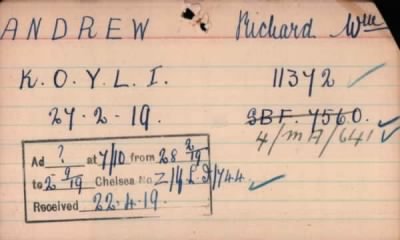 ANDREW Richard Wm
K. O. Y. L. I. 11372
27 - 2 - 19. SBF. 7560.
4/MA/641
Ad ? at 7/10 from 28 2/19
to 2 9/19 Chelsea No Z/4
Received 22.4.19.